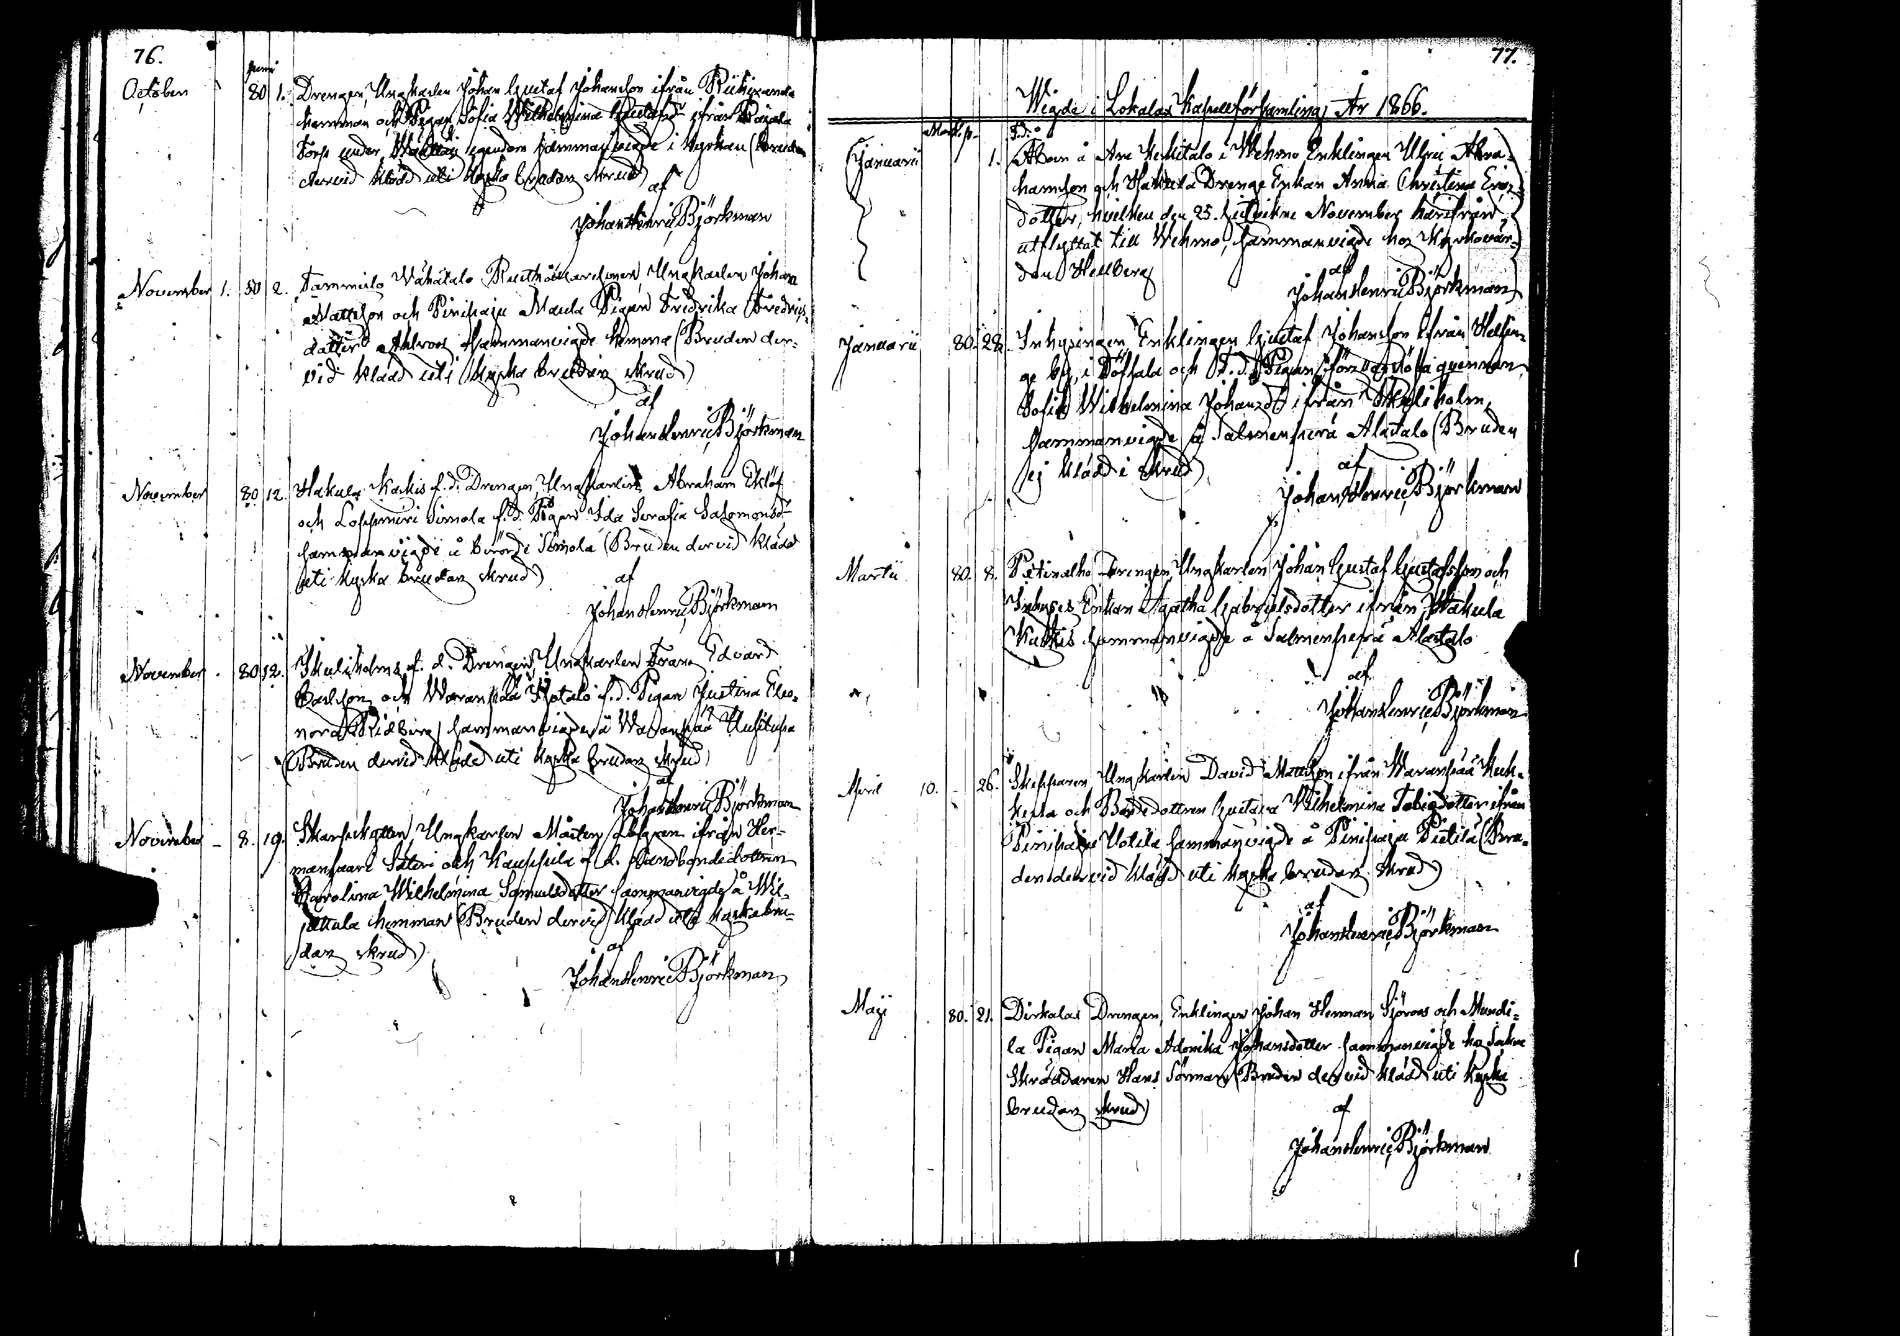 76.
penni
October 80 1. Drengen, Ungkarlen Johan Gustaf Johansson ifrån
hemman och Pigan Sofia Wilhelmina ifrån
Torp under egendom sammanvigde i Kyrkan (Bruden
dervid klädd uti kyska brudars skrud)
af
Johan Henric Björkman
November 1. 80 2. Tammisto Wähätalo Ungkarlen Johan
Mattsson och Pinipaju Maula Pigan Fredrika Fredrics-
dotter Ahlroos sammanvigde hemma (Bruden der-
vid klädd uti kyska brudars skrud)
af
Johan Henric Björkman
November 80 12. Hakula Kaskis f.d. Drengen, Ungkarlen Abraham Eklöf
och Simola f.d. Pigan Ida Serafia Salomonsdr
sammanvigde å berörde Simola (Bruden dervid klädd
uti kyska brudars skrud)
af
Johan Henric Björkman
November 80 12. Skuliholms f.d. Drengen, Ungkarlen Frans Edvard
Carlsson och Waranpää f.d. Pigan Justina Eleo-
nora Ridberg sammanvigde å Waranpää Uusitupa
(Bruden dervid klädd uti kyska brudars skrud)
af
Johan Henric Björkman
November 8. 19. Ungkarlen Mårten Löfgren ifrån Her-
mansaari Säteri och Kauppila f.d. Landbondedottren
Carolina Wilhelmina Samuelsdotter sammanvigde å Wil-
juttula hemman (Bruden dervid klädd uti kyska bru-
dars skrud)
af
Johan Henric Björkman
77.
Wigde i Lokalax Kapellförsamling År 1866.
Mark. p.
Januarii 1. F.d.
å Heikitalo i Wehmo Enklingen Abra-
hamsson och Hakula Drenge Enkan Anna Christina Ers-
dotter, hvilken den 25. November härifrån
utflyttat till Wehmo, sammanvigde hos Kyrkovär-
den Hellberg
af
Johan Henric Björkman
Januarii 80. 28. Inhysingen, Enklingen Gustaf Johansson ifrån Helsin-
ge by, i Töfsala och F.d. Pigan qvinnan
Sofia Wilhelmina Johansdr ifrån Skuliholm,
sammanvigde å Salmenperä Alatalo (Bruden
ej klädd i skrud)
af
Johan Henric Björkman
Martii 80. 8. Drengen, Ungkarlen Johan Gustaf Gustafsson och
Inhyses Enkan Agatha Gabrielsdotter ifrån Hakula
Kaskis sammanvigde å Salmenperä Alatalo
af
Johan Henric Björkman
April 10. 26. Skepparen, Ungkarlen David Mattsson ifrån Waranpää
och Bondedottren Gustava Wilhelmina Tobiedotter ifrån
Pinipaju Uotila sammanvigde å Pinipaju Pietilä (Bru-
den dervid klädd uti kyska brudars skrud)
af
Johan Henric Björkman
Maji 80. 21. Dirkalas Drengen, Enklingen Johan Herman Sjöroos och
la Pigan Maria Johansdotter sammanvigde hos
Skräddaren Hans Sörman (Bruden dervid klädd uti kyska
brudars skrud)
af
Johan Henric Björkman